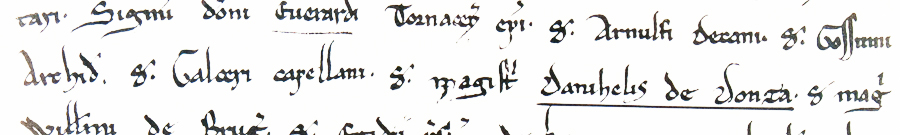 rarj. Signū dōni Euerardi Tornaceñ epī. S'. Arnulfi Decani. S'. Gossuini
Archid'. S'. Galceri capellani. S'. magist' Danihelis de Donza. S' mag'
Willmi de Brug'. S'.